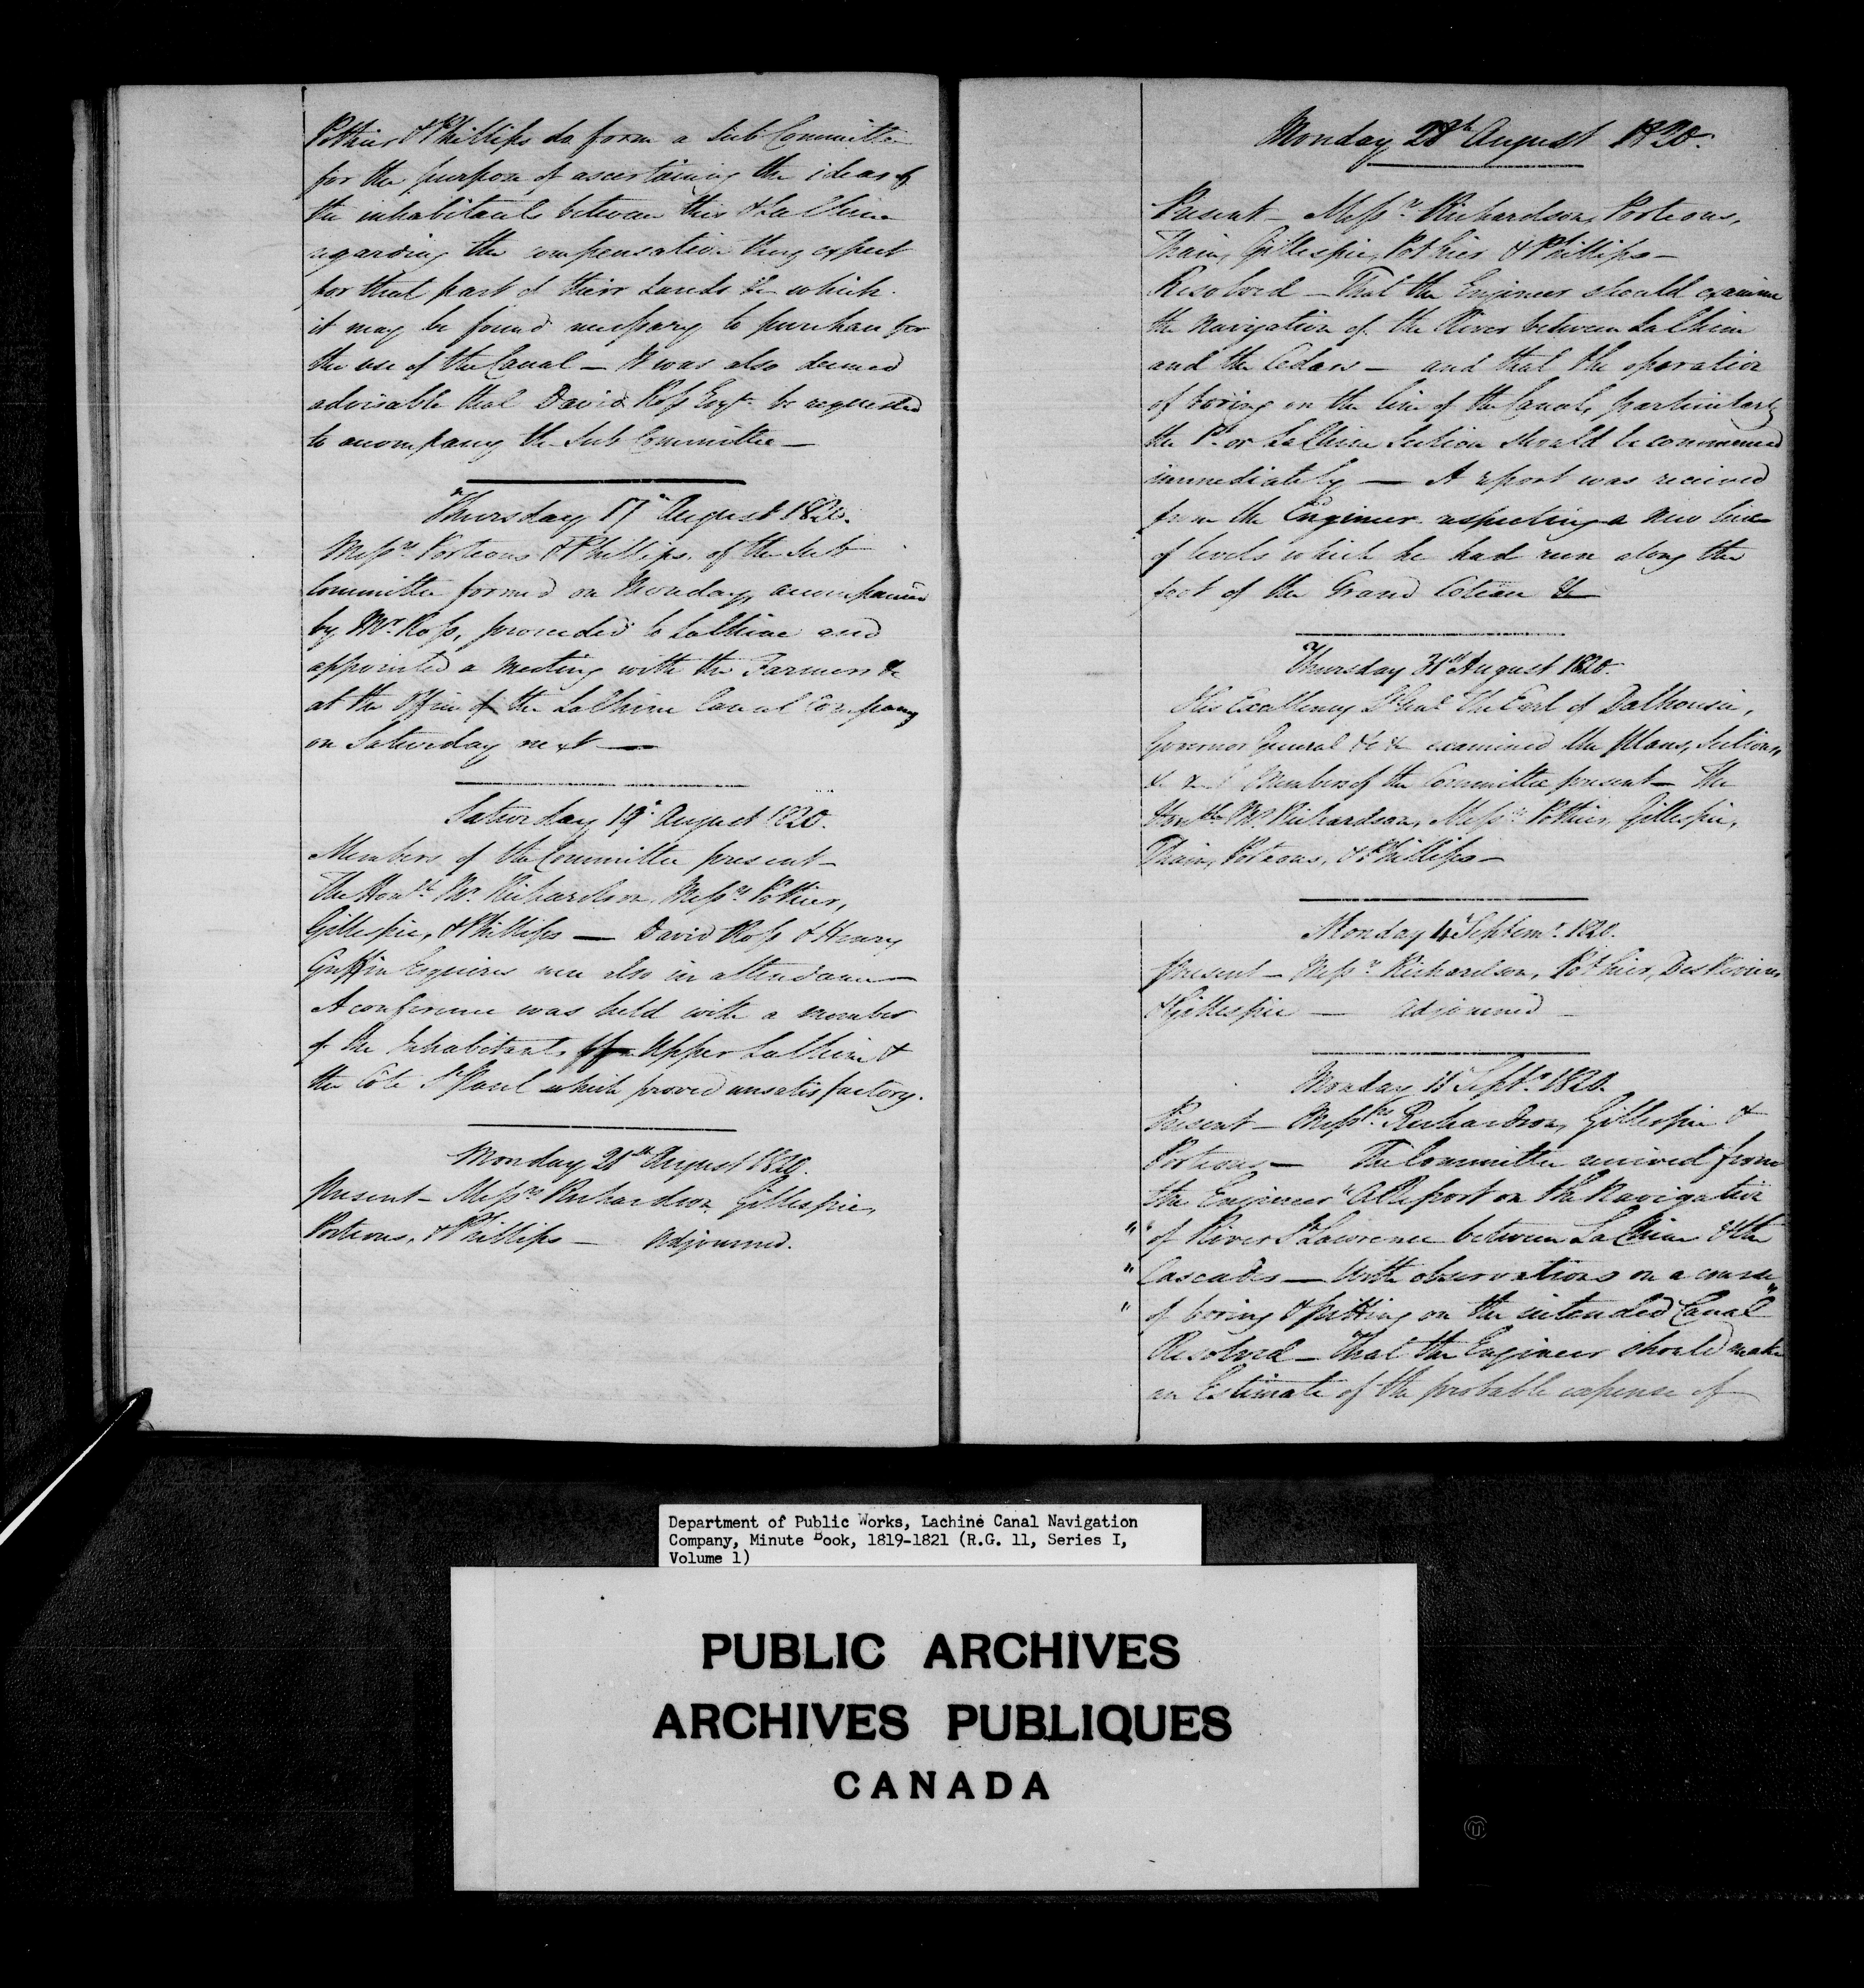 Pothier & Phillips do form a Sub Committee
for the purpose of ascertaining the ideas of
the inhabitants between this & La Chine
regarding the compensation they expect
for that part of their Lands &c which
it may be found necessary to purchase for
the use of the Canal — It was also deemed
advisable that David Ross Esqr. be requested
to accompany the Sub Committee —
Thursday 17th August 1820.
Messrs. Porteous & Phillips, of the Sub
Committee formed on Monday, accompanied
by Mr. Ross, proceeded to LaChine and
appointed a Meeting with the Farmers &c
at the Office of the LaChine Canal Company
on Saturday next —
Saturday 19th August 1820.
Members of the Committee present —
The Honble. Mr. Richardson, Messrs. Pothier,
Gillespie, & Phillips — David Ross & Henry
Griffin Esquires were also in attendance —
A conference was held with a number
of the Inhabitants of Upper LaChine &
the Côte St Paul which proved unsatisfactory.
Monday 21st August 1820.
Present — Messrs Richardson, Gillespie,
Porteous, & Phillips — Adjourned.
Monday 28th August 1820.
Present — Messrs. Richardson, Porteous,
Thain, Gillespie, Pothier & Phillips —
Resolved — That the Engineer should examine
the Navigation of the River between LaChine
and the Cedars — and that the operation
of boring on the line of the Canal, particularly
the 1st or LaChine Section should be commenced
immediately — A report was received
from the Engineer respecting a new line
of levels which he had run along the
foot of the Grand Coteau &c
Thursday 31st August 1820.
His Excellency Lt Genl The Earl of Dalhousie,
Governor General &c &c examined the Plans, Sections,
&c &c Members of the Committee present — The
Honble Mr Richardson, Messrs. Pothier, Gillespie,
Thain, Porteous, & Phillips —
Monday 4th Septemr. 1820.
Present — Messrs. Richardson, Pothier, DesRivieres
& Gillespie — adjourned —
Monday 11th Septr. 1820.
Present — Messrs. Richardson, Gillespie &
Porteous — The Committee received from
the Engineer "A Report on the Navigation
" of River St Lawrence between LaChine & the
" Cascades — With observations on a course
" of boring & pitting on the intended Canal"
Resolved — That the Engineer should make
an Estimate of the probable expense of
Department of Public Works, Lachine Canal Navigation
Company, Minute Book, 1819-1821 (R.G. 11, Series I,
Volume 1)
PUBLIC ARCHIVES
ARCHIVES PUBLIQUES
CANADA